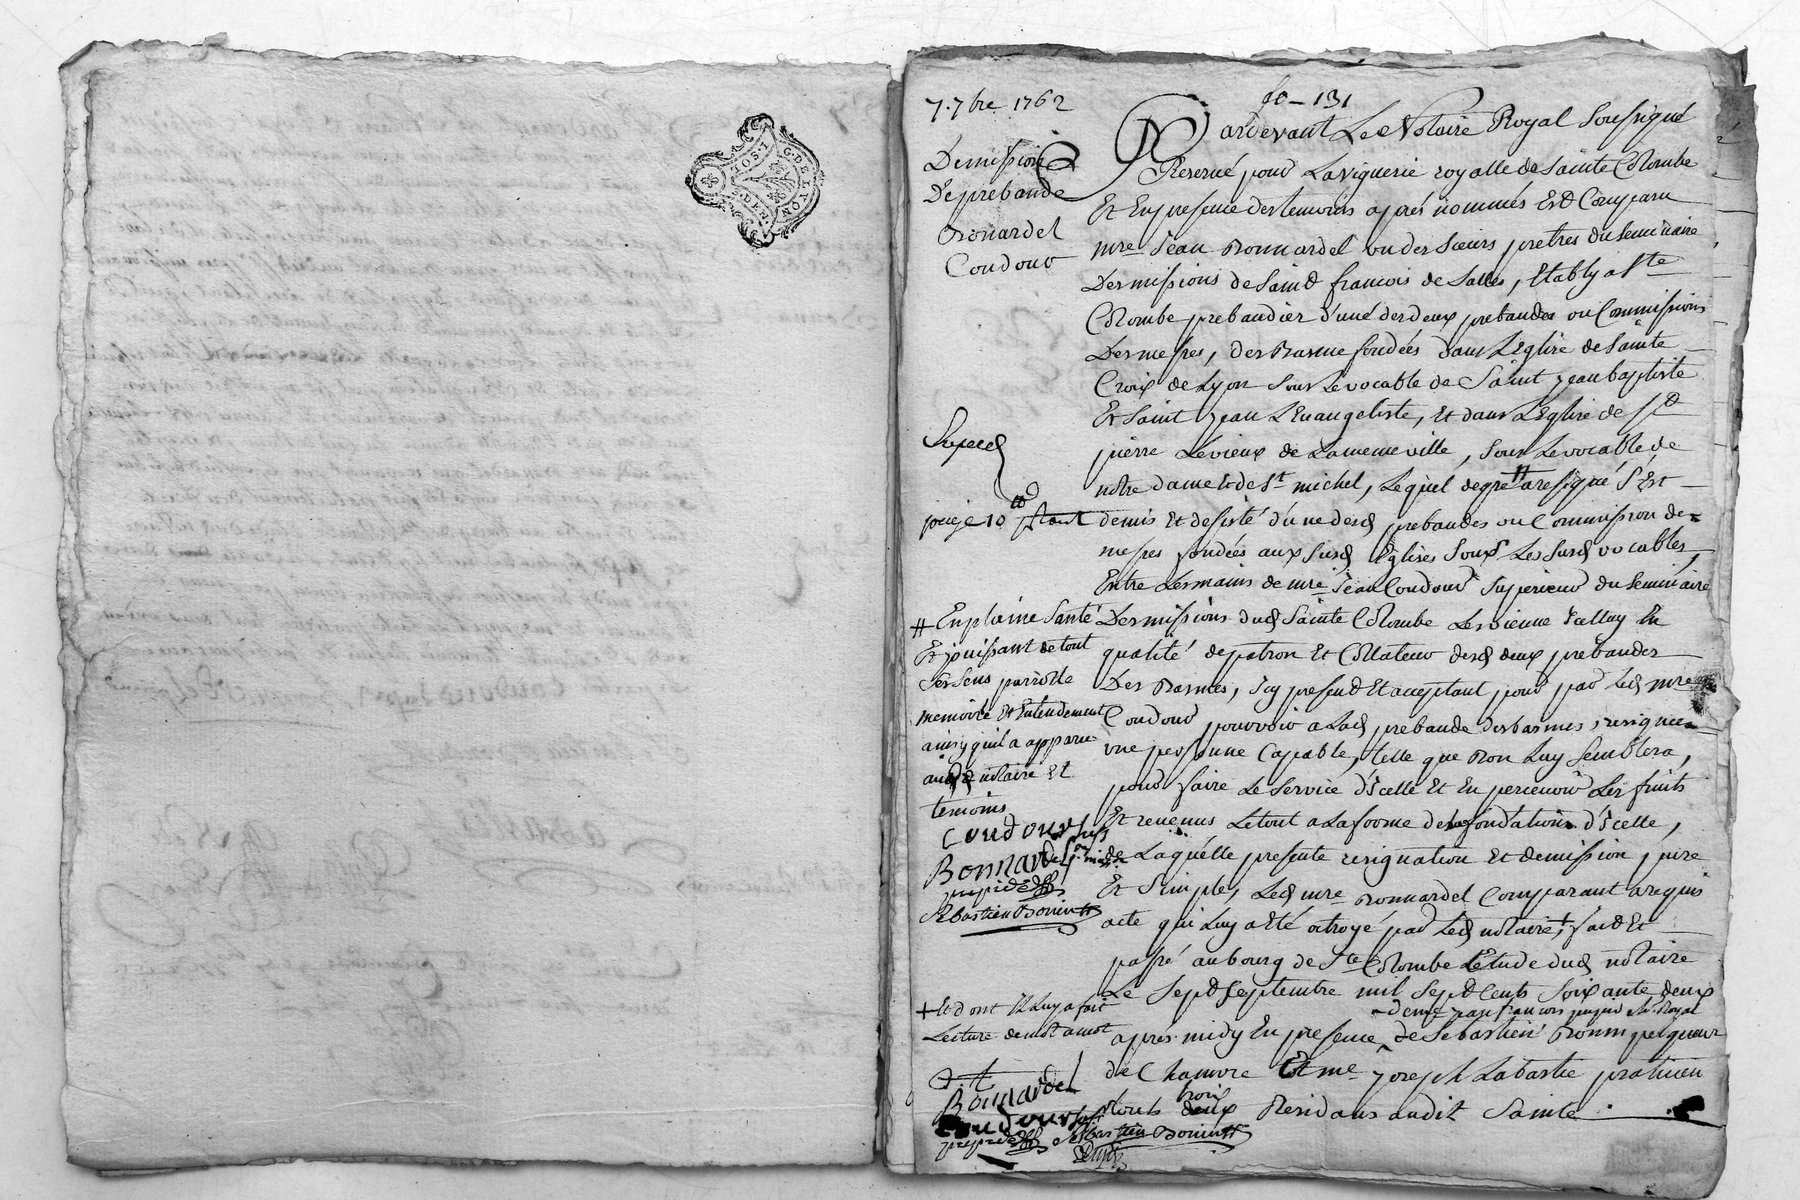 G. DE LYON
2. DEN.
7. 7bre 1762
fo - 131
Demission
De prebande
Bonnardel
Coudour
Pardevant Le Notaire Royal Soussigné
Reservé pour La viguerie royalle de Sainte Colombe
Et En presence des temoins aprés nommés Est Comparu
mre Jean Bonnardel un des Sœurs pretres du Seminaire
Des missions de Saint francois de Salles, Etably a Ste
Colombe prebandier d'une des deux prebandes ou Commissions
Des messes, des Basme fondées dans L'Eglise de Sainte
Croix de Lyon Sous Le vocable de Saint jean baptiste
Et Saint jean L'Evangeliste, Et dans L'Eglise de St
pierre Le vieux de La meme ville, Sous Le vocable de
notre dame Et de St michel, Lequel de gré # a resigné S'Est
demis Et desisté d'une desd prebandes ou Commission de
messes fondées aux Susd Eglises Sous Les Susd vocables,
Entre Les mains de mre Jean Coudour Superieur du Seminaire
Des missions dud Sainte Colombe Les vienne Icelluy En
qualité de patron Et Collateur desd deux prebandes
Des Basmes, Icy present Et acceptant pour par Led mre
Coudour pouvoir a Lad prebande des basmes, resignee
une personne Capable, telle que Bon Luy Semblera,
pour faire Le Service d'Icelle Et En percevoir Les fruits
Et revenus Le tout a La forme de La fondation d'Icelle,
de Laquelle presente resignation Et demission pure
Et Simple, Led mre Bonnardel Comparant a requis
acte qui Luy a eté octroyé par Led notaire + fait Et
passé au bourg de Ste Colombe L'Etude dud notaire
Le Sept Septembre mil Sept Cents Soixante deux
apres midy En presence de Sebastien Bonin perqueur
de Chanvre Et me Joseph Labastie praticien
trois
tous deux Residans audit Sainte
# En plaine Santé
Et jouissant de tout
Ses Sens parrolle
memoire Et Entendement
ainsy qu'il a apparu
aud notaire Et
temoins
Coudour
Bonnardel
Sebastien Bonin
+ Et dont Il Luy a fait
Lecture de mot a mot
Bonnardel
Coudour
Sebastien Bonin